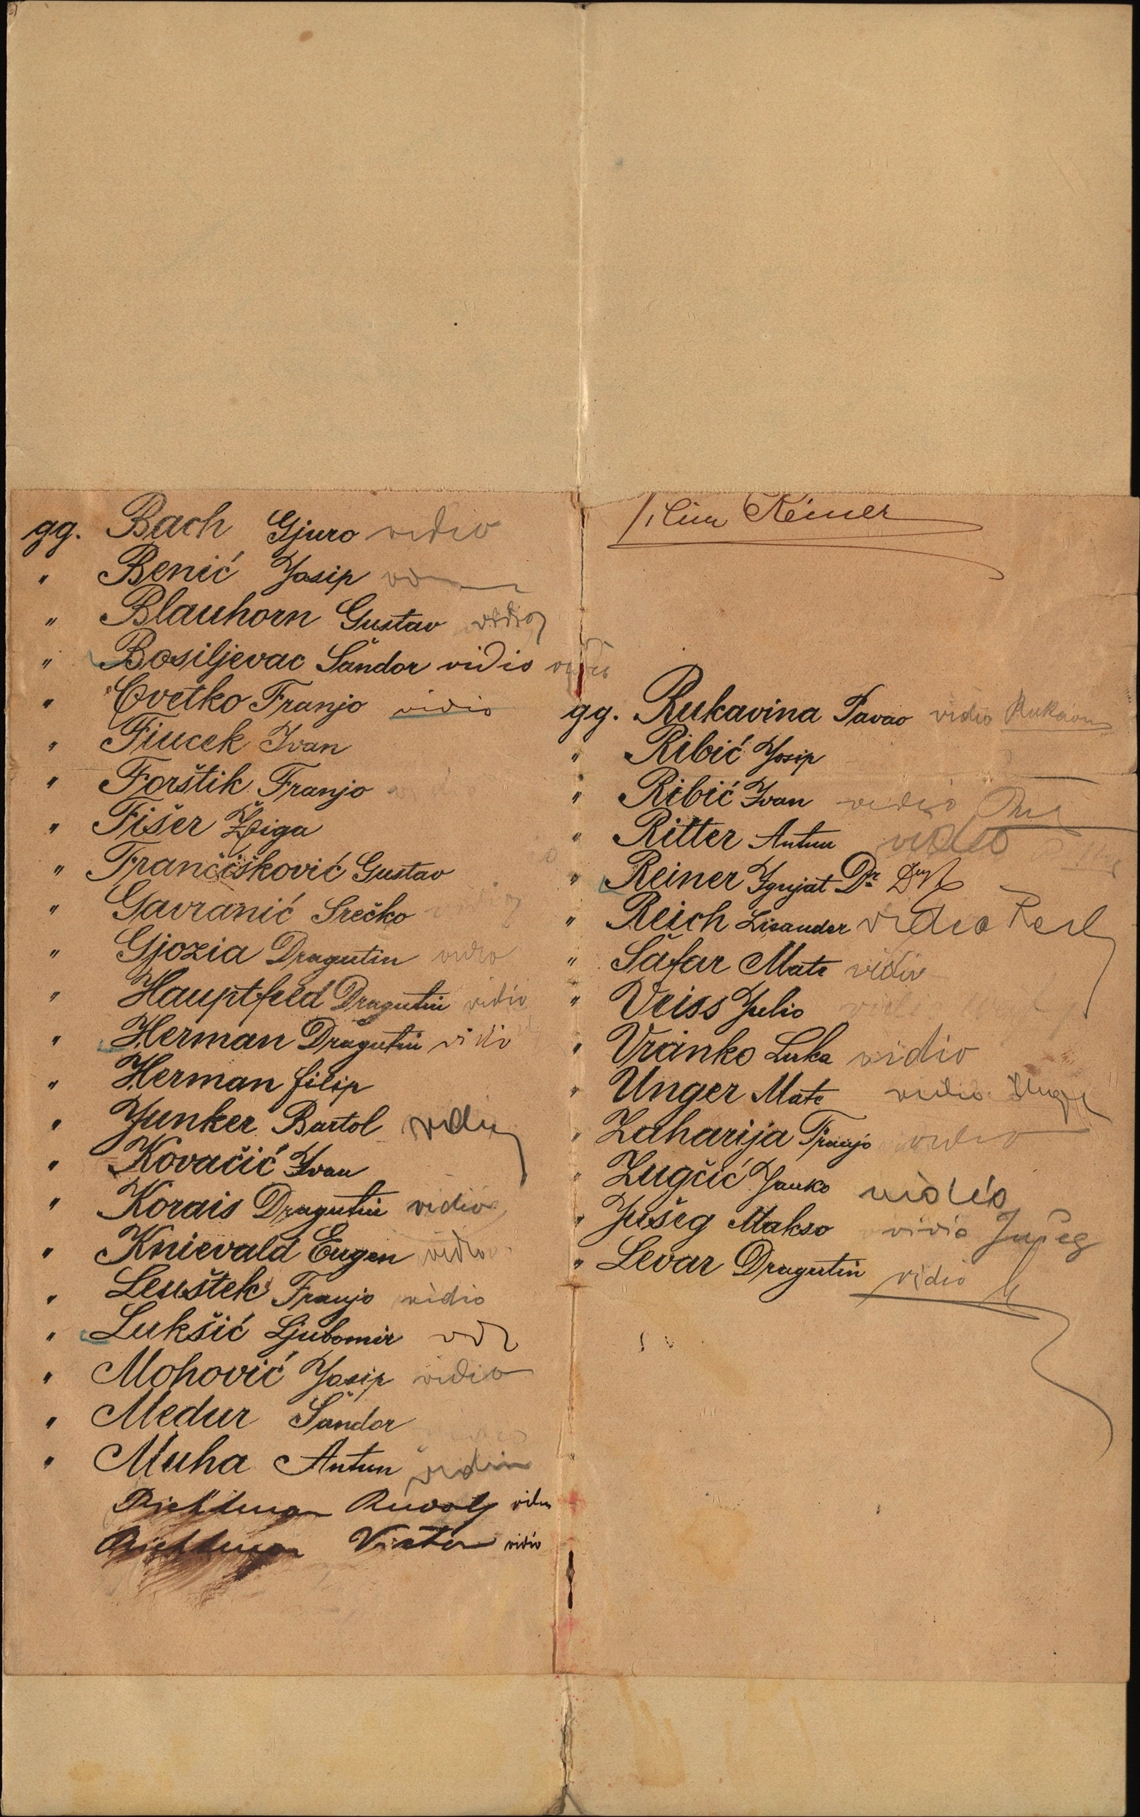 gg. Bach Gjuro vidio
" Benić Josip
" Blauhorn Gustav vidio
" Bosiljevac Šandor vidio vidio
" Cvetko Franjo vidio
" Fiucek Ivan
" Forštik Franjo
" Fišer Žiga
" Frančišković Gustav
" Gavranić Srečko vidio
" Gjozia Dragutin vidio
" Hauptfeld Dragutin vidio
" Herman Dragutin vidio
" Herman Filip
" Junker Bartol vidio
" Kovačić Ivan
" Korais Dragutin vidio
" Knievald Eugen vidio
" Leuštek Franjo vidio
" Lukšić Ljubomir
" Mohović Josip vidio
" Medur Šandor
" Muha Antun vidio
Richtman Rudolf vidio
Richtman Viktor vidio
Reiner
gg. Rukavina Pavao vidio Rukavina
" Ribić Josip
" Ribić Ivan vidio
" Ritter Antun vidio
" Reiner Ignjat Dr.
" Reich Lisander vidio Reich
" Šafar Mate vidio
" Veiss Julio
" Vranko Luka vidio
" Unger Mate vidio Unger
" Zaharija Franjo vidio
" Zugčić Janko vidio
" Jušeg Makso vidio Jušeg
" Levar Dragutin vidio